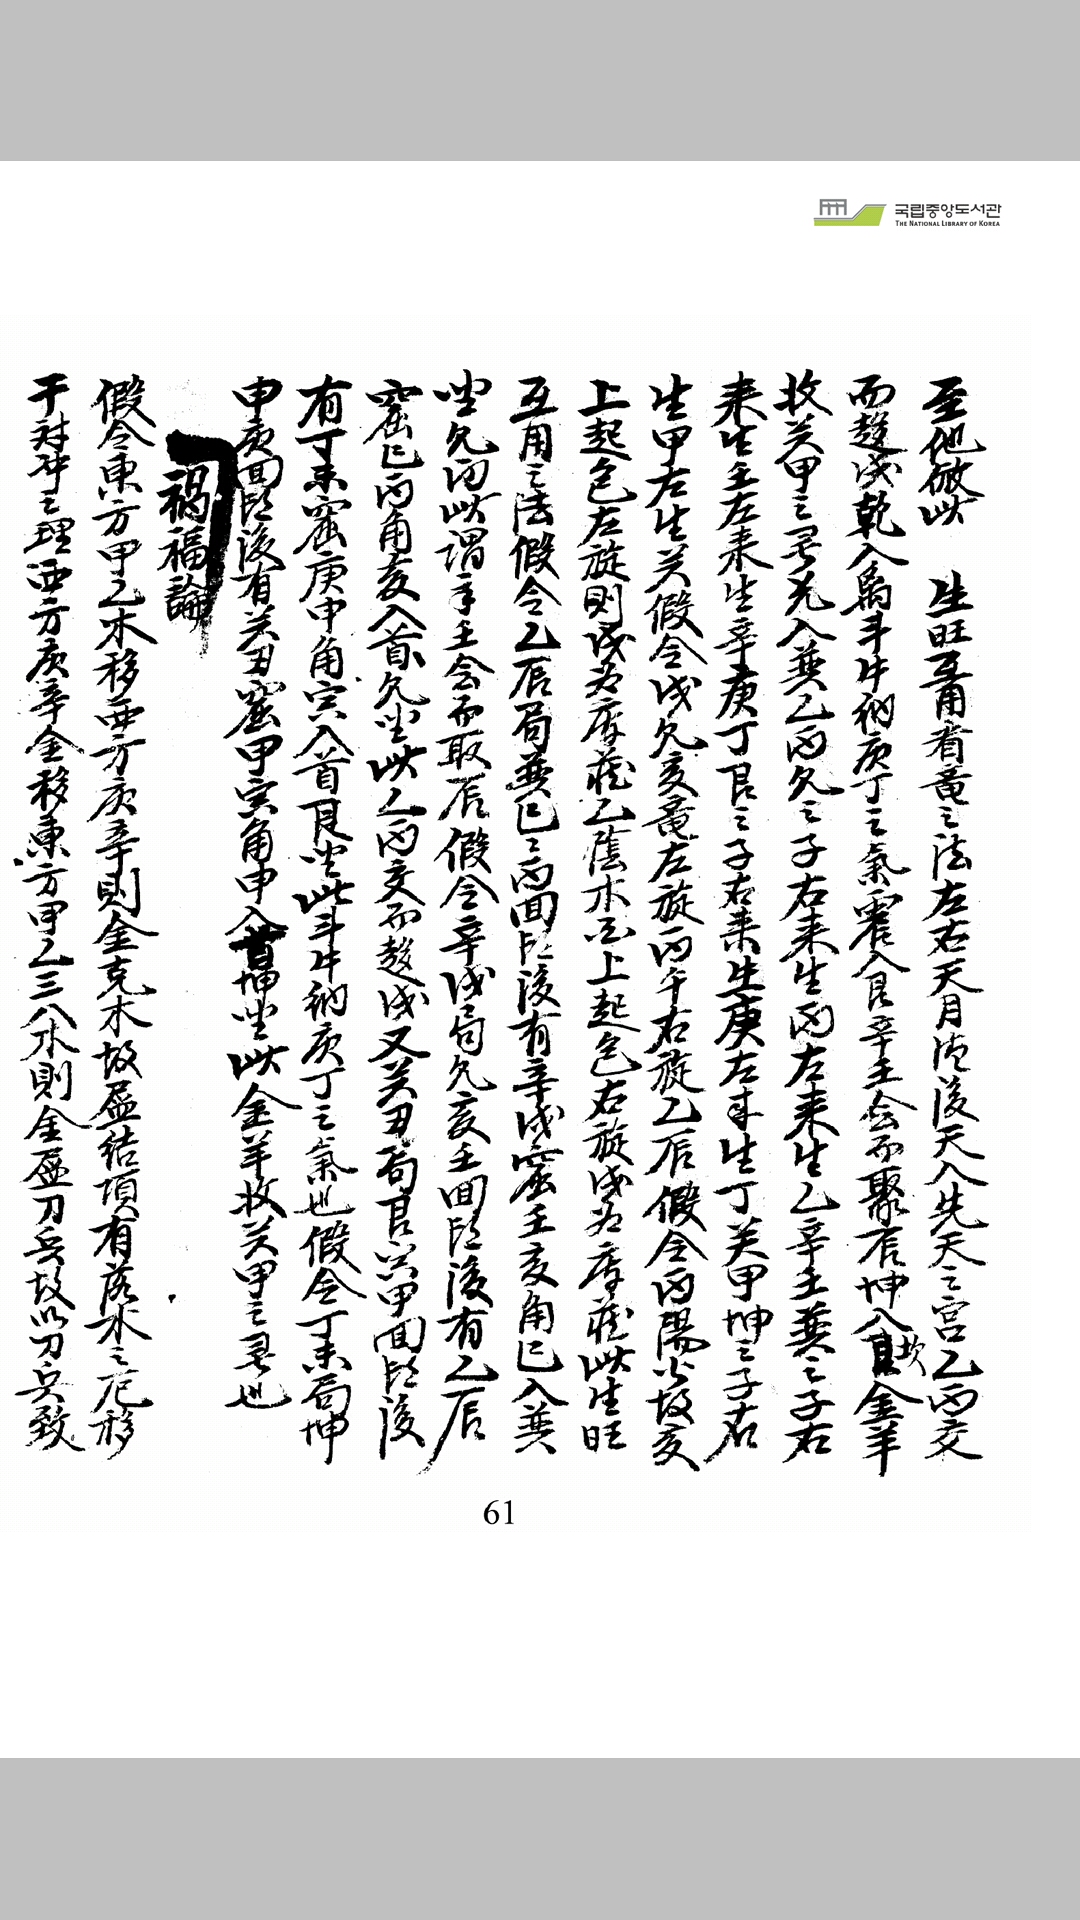 국립중앙도서관
THE NATIONAL LIBRARY OF KOREA
至他倣此 生旺互用看竜之法左右天月德後天入先天之宮乙丙交
而趨戌乾入禹斗牛納庚丁之氣震入艮辛壬会而聚辰坤入坎金羊
收癸甲之灵兌入巽乙丙久之子右来生丙左来生乙辛壬巽之子右
来生壬左来生辛庚丁艮之子右来生庚左来生丁癸甲坤之子右
生甲左生癸假令戌乾亥竜左旋丙午右旋乙辰假令丙陽火故亥
上起包左旋則戌为庫藏乙陰木 上起包右旋戌为庫藏此生旺
互用之法假令乙辰局巽巳丙回 後有辛戌窟壬亥角巳入巽
坐 此謂辛壬会而取辰假令辛戌局 亥壬回 後有乙辰
窟巳丙角亥入首 坐此乙丙交而趨戌又癸丑局艮 甲回 後
有丁未窟庚申角寅入首艮坐此斗牛納庚丁之氣也假令丁未局坤
申庚回 後有癸丑窟甲寅角申入首坤坐此金羊收癸甲之灵也
禍福論
假令東方甲乙木移西方庚辛則金克木故 結項有落水之厄移
于対冲之理西方庚辛金移東方甲乙三八木則金 刀兵故以刀兵致
61